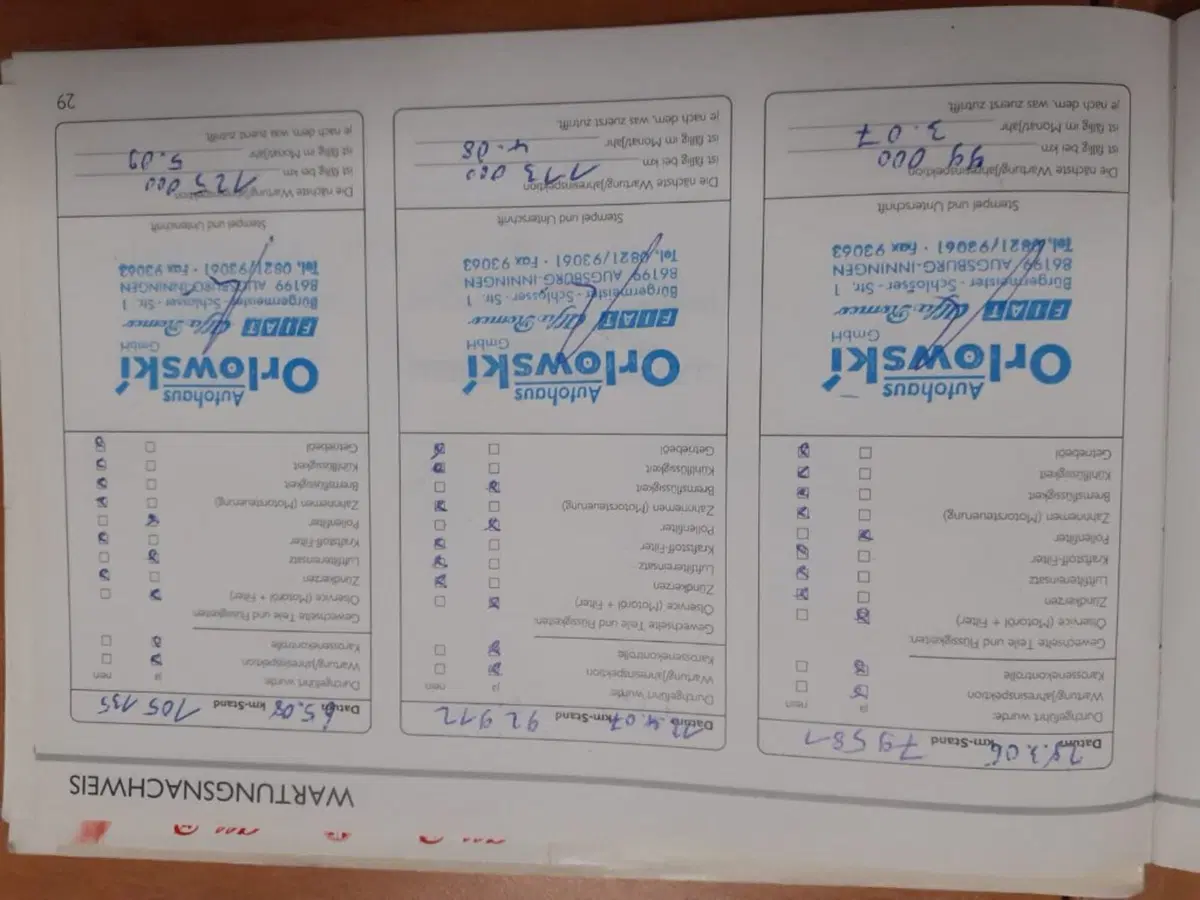 WARTUNGSNACHWEIS
Datum 28.3.06 km-Stand 79581
Durchgeführt wurde: ja nein
Wartung/Jahresinspektion
Karosseriekontrolle
Gewechselte Teile und Flüssigkeiten:
Ölservice (Motoröl + Filter)
Zündkerzen
Luftfiltereinsatz
Kraftstoff-Filter
Pollenfilter
Zahnriemen (Motorsteuerung)
Bremsflüssigkeit
Kühlflüssigkeit
Getriebeöl
Autohaus
Orlowski
GmbH
FIAT Alfa Romeo
Bürgermeister-Schlosser-Str. 1
86199 AUGSBURG-INNINGEN
Tel. 0821/93061 · Fax 93063
Stempel und Unterschrift
Die nächste Wartung/Jahresinspektion
ist fällig bei km 99 000
ist fällig im Monat/Jahr 3.07
je nach dem, was zuerst zutrifft.
Datum km-Stand 92 912
Durchgeführt wurde: ja nein
Wartung/Jahresinspektion
Karosseriekontrolle
Gewechselte Teile und Flüssigkeiten:
Ölservice (Motoröl + Filter)
Zündkerzen
Luftfiltereinsatz
Kraftstoff-Filter
Pollenfilter
Zahnriemen (Motorsteuerung)
Bremsflüssigkeit
Kühlflüssigkeit
Getriebeöl
Autohaus
Orlowski
GmbH
FIAT Alfa Romeo
Bürgermeister-Schlosser-Str. 1
86199 AUGSBURG-INNINGEN
Tel. 0821/93061 · Fax 93063
Stempel und Unterschrift
Die nächste Wartung/Jahresinspektion
ist fällig bei km 113 000
ist fällig im Monat/Jahr 4.08
je nach dem, was zuerst zutrifft.
Datum 6.5.08 km-Stand 105 135
Durchgeführt wurde: ja nein
Wartung/Jahresinspektion
Karosseriekontrolle
Gewechselte Teile und Flüssigkeiten:
Ölservice (Motoröl + Filter)
Zündkerzen
Luftfiltereinsatz
Kraftstoff-Filter
Pollenfilter
Zahnriemen (Motorsteuerung)
Bremsflüssigkeit
Kühlflüssigkeit
Getriebeöl
Autohaus
Orlowski
GmbH
FIAT Alfa Romeo
Bürgermeister-Schlosser-Str. 1
86199 AUGSBURG-INNINGEN
Tel. 0821/93061 · Fax 93063
Stempel und Unterschrift
Die nächste Wartung/Jahresinspektion
ist fällig bei km 125 000
ist fällig im Monat/Jahr 5.09
je nach dem, was zuerst zutrifft.
29